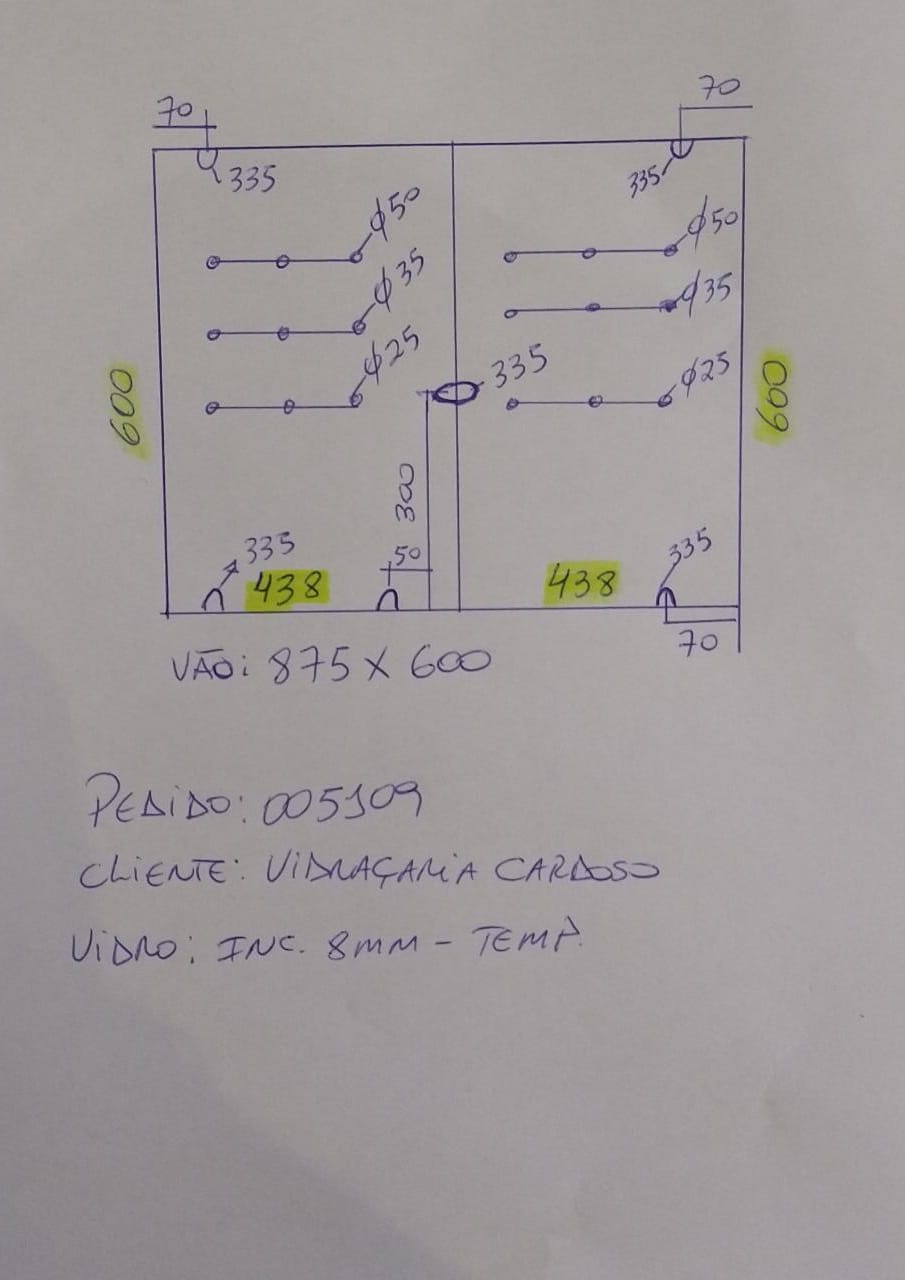 70
70
335
335
φ50
φ50
φ35
φ35
φ25
φ25
335
600
600
300
335
438
50
438
335
70
VÃO: 875 X 600
PEDIDO: 005109
CLIENTE: VIDRAÇARIA CARDOSO
VIDRO: INC. 8MM - TEMP.